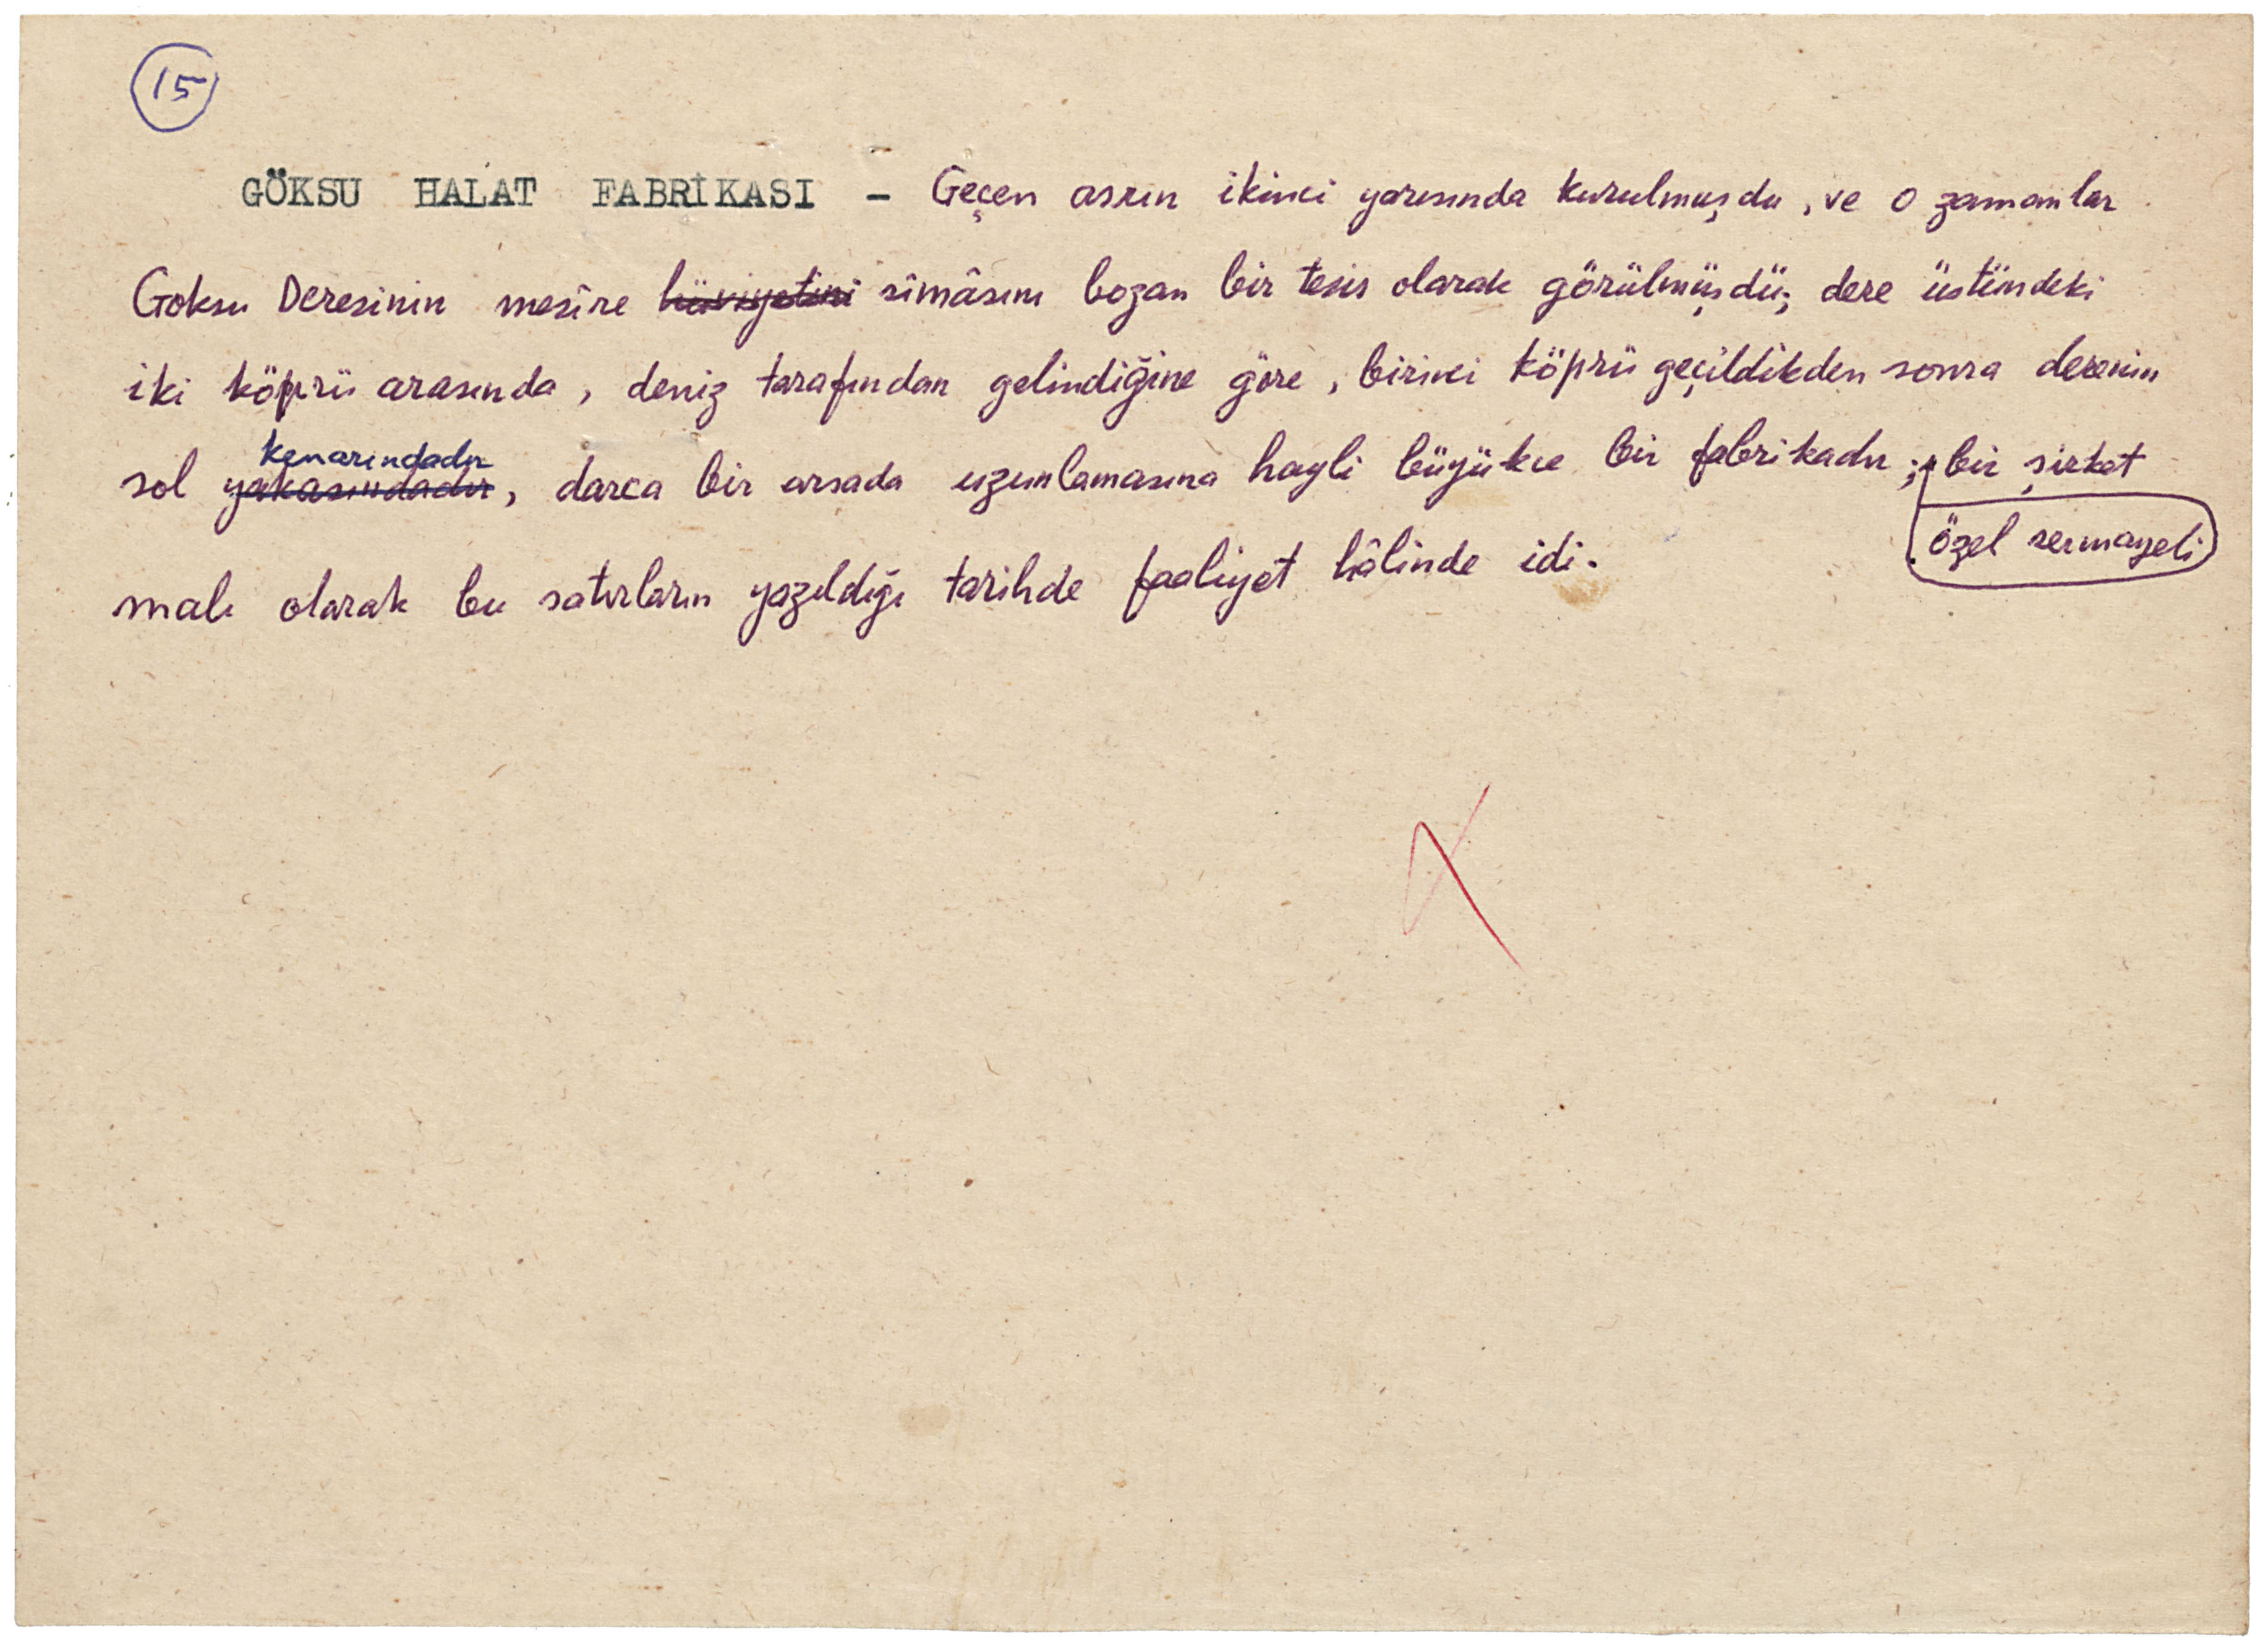 15
GÖKSU HALAT FABRİKASI - Geçen asrın ikinci yarısında kurulmuşdu, ve o zamanlar
Göksu Deresinin mesîre hüviyetini sîmâsını bozan bir tesis olarak görülmüşdü; dere üstündeki
iki köprü arasında, deniz tarafından gelindiğine göre, birinci köprü geçildikden sonra derenin
kenarındadır
sol yakasındadır, darca bir arsada uzunlamasına hayli büyükce bir fabrikadır; bir şirket
özel sermayeli
malı olarak bu satırların yazıldığı tarihde faaliyet hâlinde idi.